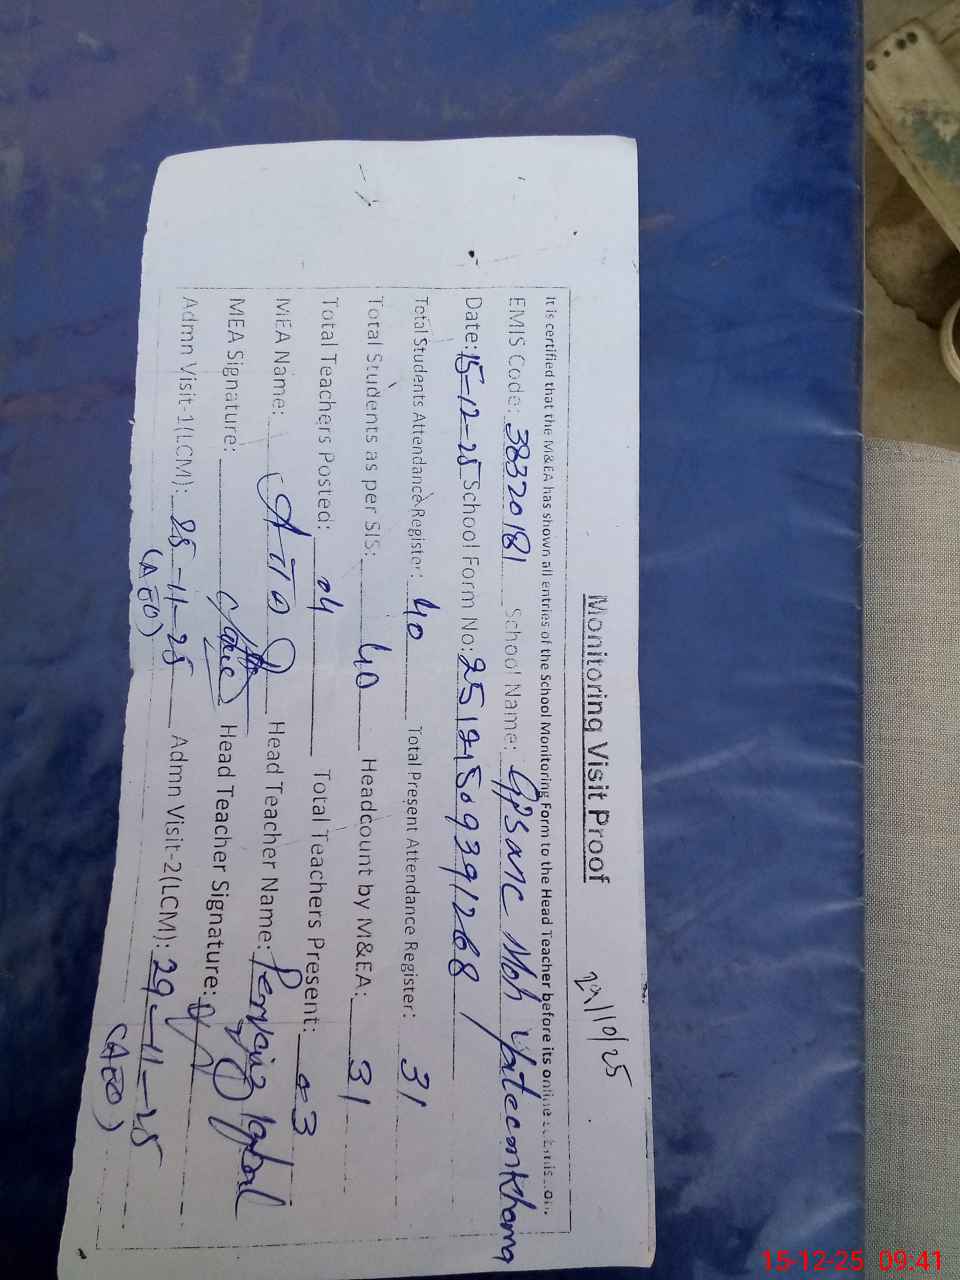 Monitoring Visit Proof
29/10/25
It is certified that the M&EA has shown all entries of the School Monitoring Form to the Head Teacher before its online submission.
EMIS Code: 38320181 School Name: GPS MC Moh Yateemkhana
Date: 15-12-25 School Form No: 25121509391268
Total Students Attendance Register: 40 Total Present Attendance Register: 31
Total Students as per SIS: 40 Headcount by M&EA: 31
Total Teachers Posted: 04 Total Teachers Present: 03
MEA Name: Head Teacher Name: Pervaiz Iqbal
MEA Signature: Head Teacher Signature:
Admn Visit-1(LCM): 25-11-25 Admn Visit-2(LCM): 29-11-25
(AEO) (AEO)
15-12-25 09:41